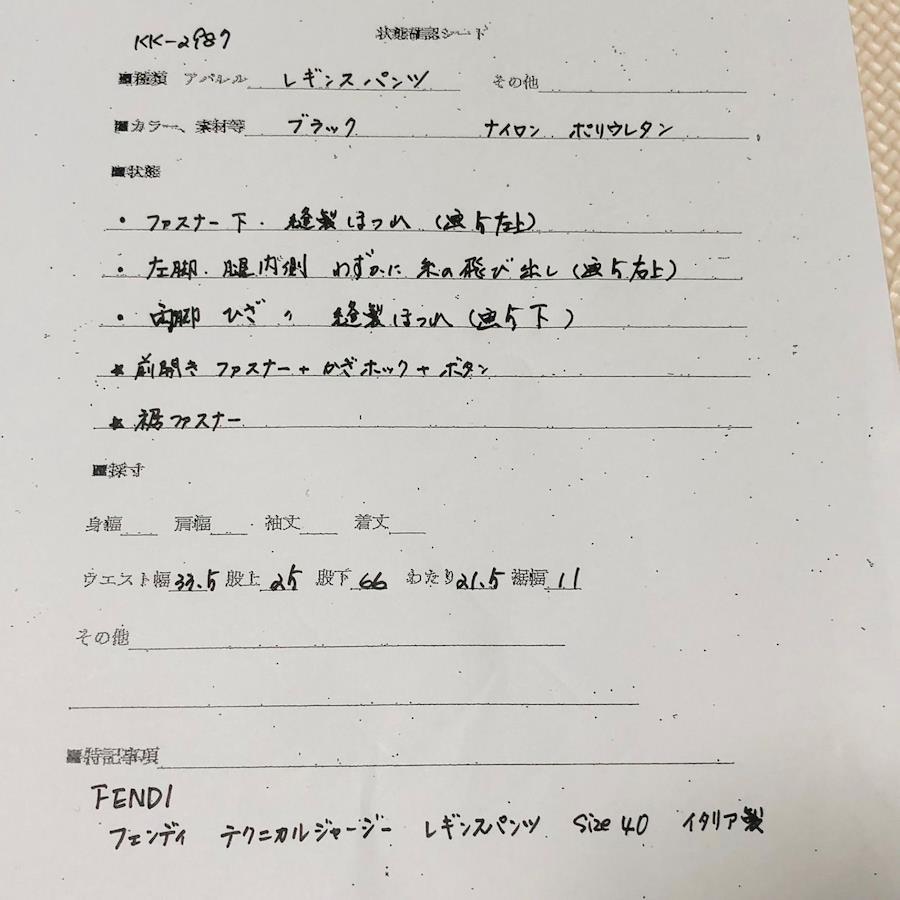 KK-2987
状態確認シート
■種類 アパレル レギンスパンツ その他
■カラー、素材等 ブラック ナイロン ポリウレタン
■状態
・ファスナー下・縫製ほつれ (画5左上)
・左脚・腿内側 わずかに糸の飛び出し (画5右上)
・両脚 ひざの 縫製ほつれ (画5下)
★前開き ファスナー+かぎホック+ボタン
★裾ファスナー
■採寸
身幅 肩幅 袖丈 着丈
ウエスト幅 33.5 股上 25 股下 66 わたり 21.5 裾幅 11
その他
■特記事項
FENDI
フェンディ テクニカルジャージー レギンスパンツ Size 40 イタリア製